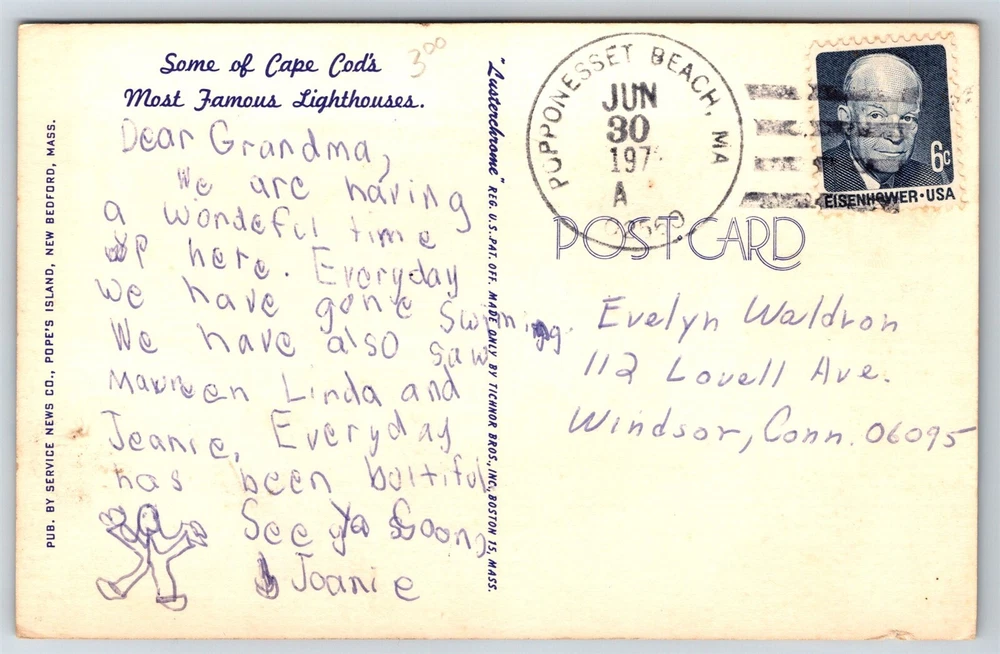 Some of Cape Cod's
Most Famous Lighthouses.
300
Dear Grandma,
We are having
a wondeful time
up here. Everyday
we have gone Swiming.
We have also saw
Maureen Linda and
Jeanie. Everyday
has been baltiful
See ya Soon,
Joanie
PUB. BY SERVICE NEWS CO., POPE'S ISLAND, NEW BEDFORD, MASS.
"Lusterchrome" REG. U.S. PAT. OFF. MADE ONLY BY TICHNOR BROS., INC., BOSTON 15, MASS.
POPPONESSET BEACH, MA
JUN
30
197
A
6c
EISENHOWER·USA
POST CARD
Evelyn Waldron
112 Lovell Ave.
Windsor, Conn. 06095